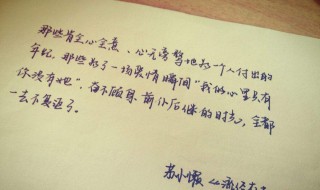 那些肯全心全意、心无旁骛地为一个人付出的
年纪,那些为了一场爱情瞬间“我的心里只有
你没有他”,奋不顾身、前仆后继的时光,全都
一去不复返了。
苏小懒《